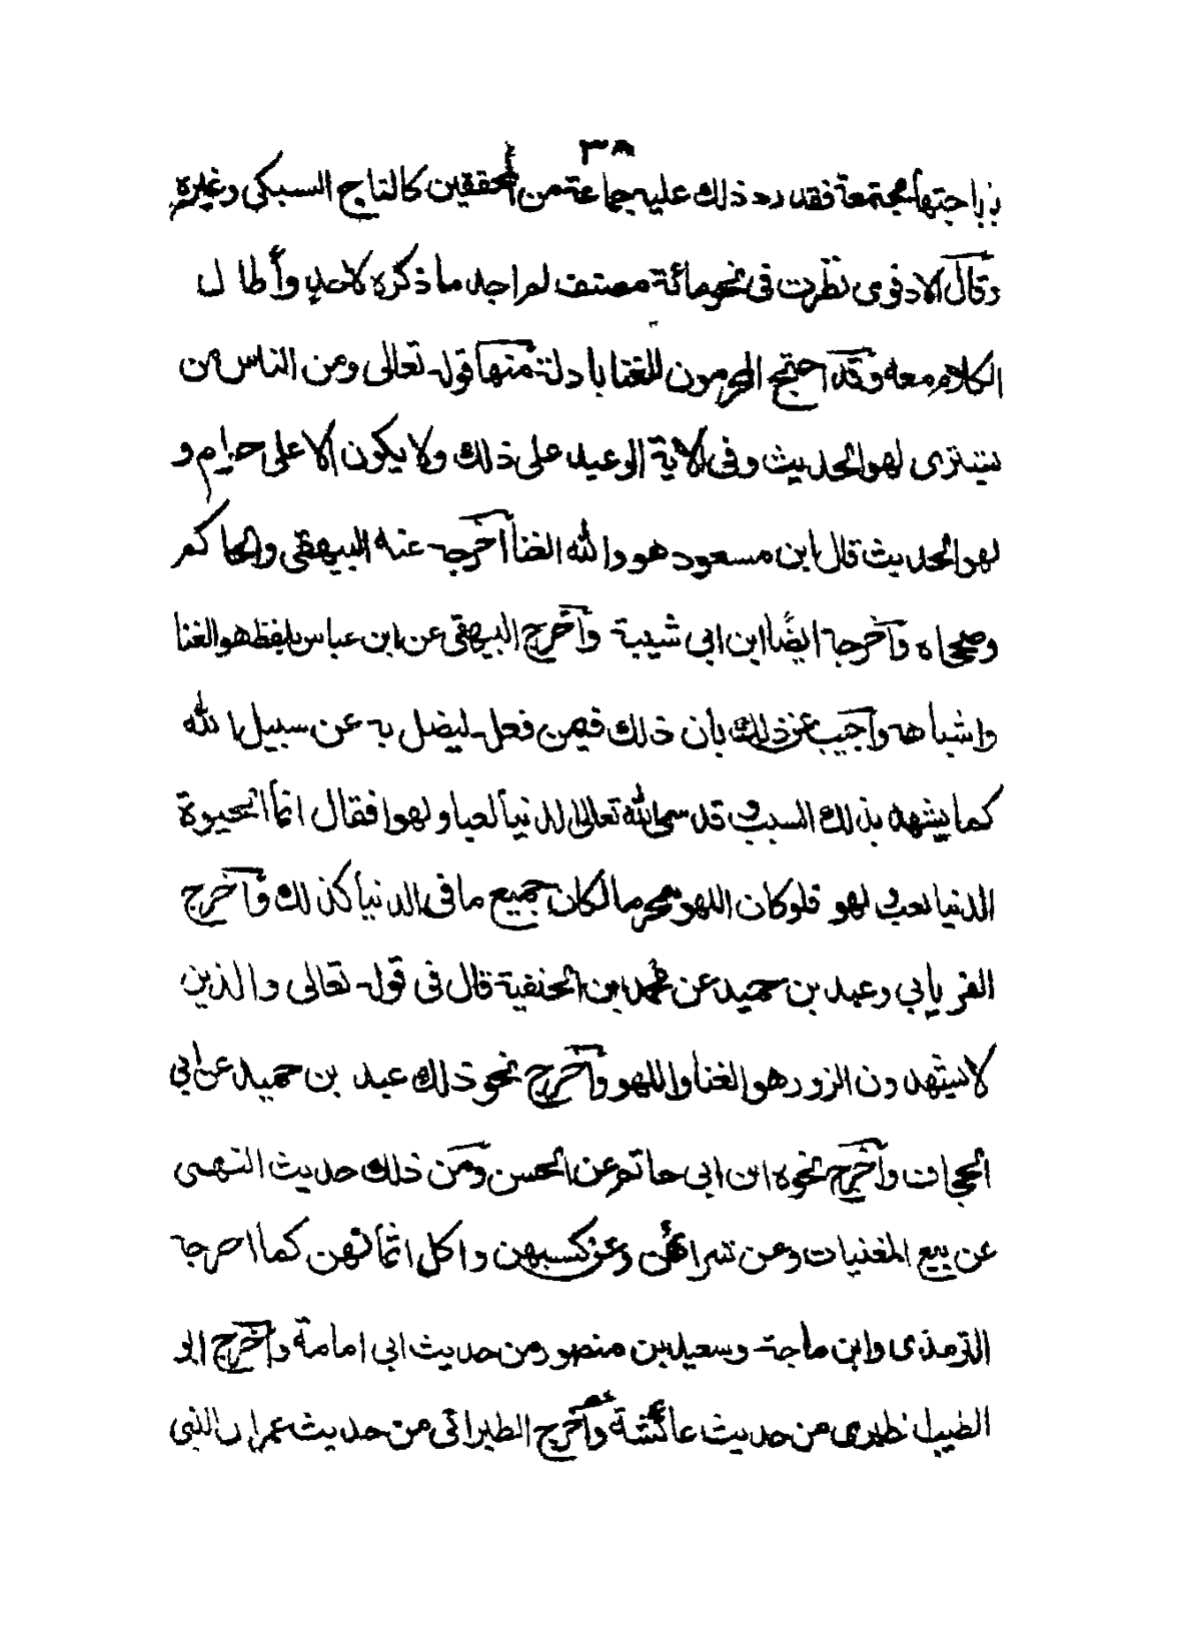 ٣٨
باباحتها مجتمعة فقد رد ذلك عليه جماعة من المحققين كالتاج السبكى وغيره
وقال الادفوى نظرت فى نحو مائة مصنف لم اجد ما ذكره لاحد وأطال
الكلام معه وقد احتج المحرمون للغنا بادلة منها قوله تعالى ومن الناس من
يشترى لهو الحديث وفى الاية الوعيد على ذلك ولا يكون الا على حرام و
لهو الحديث قال ابن مسعود هو والله الغنا أخرجه عنه البيهقى والحاكم
وصححاه وأخرجه ايضًا ابن ابى شيبة وأخرج البيهقى عن ابن عباس بلفظ هو الغنا
واشباهه وأجيب عن ذلك بان ذلك فيمن فعل ليضل به عن سبيل الله
كما يشهد بذلك السبب و قد سمى الله تعالى الدنيا لعبا ولهوا فقال انما الحيوة
الدنيا لعب و لهو فلو كان اللهو محرما لكان جميع ما فى الدنيا كذلك وأخرج
الفريابي وعبد بن حميد عن محمد ابن الحنفية قال فى قوله تعالى والذين
لا يشهدون الزور هو الغنا واللهو وأخرج نحو ذلك عبد بن حميد عن ابي
الحجاف وأخرج نحوه ابن ابى حاتم عن الحسن ومن ذلك حديث النهى
عن بيع المغنيات وعن شرائهن وعن كسبهن واكل اثمانهن كما اخرجه
الترمذى وابن ماجة وسعيد بن منصور من حديث ابى امامة وأخرج ابو
الطيب طبرى من حديث عائشة وأخرج الطبرانى من حديث عمر ان النبى